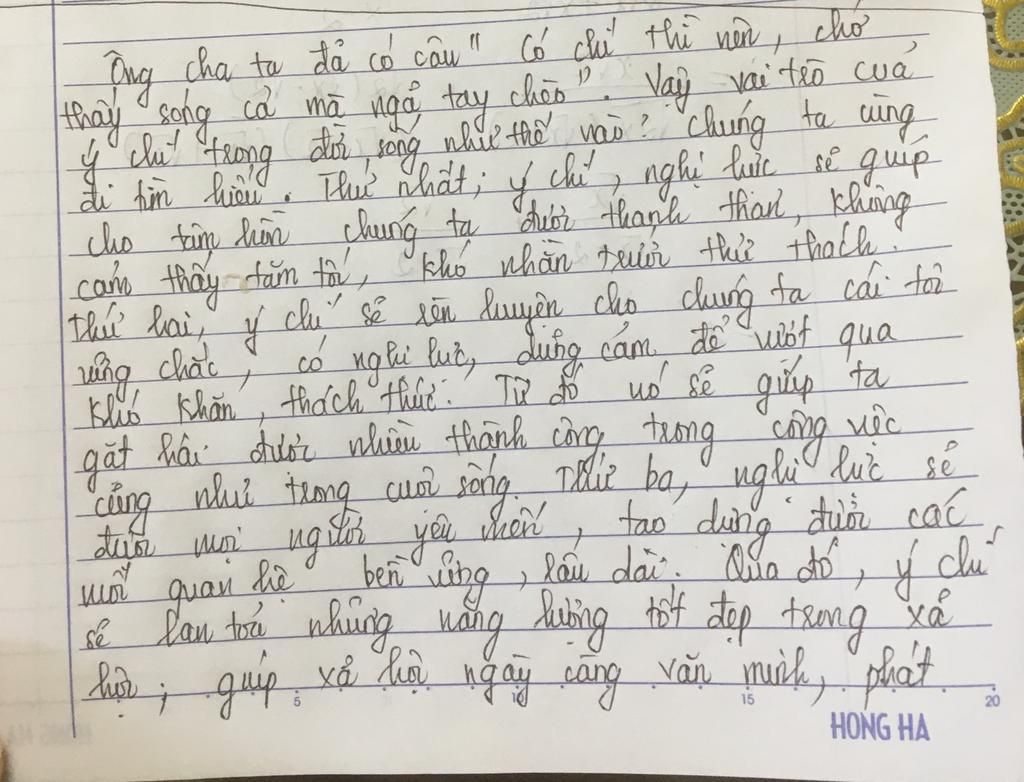 Ông cha ta đã có câu " Có chí thì nên, chớ
thấy sóng cả mà ngã tay chèo". Vậy vai trò của
ý chí trong đời sống như thế vào? chúng ta cùng
đi tìm hiểu. Thứ nhất; ý chí, nghị lực sẽ guíp
cho tâm hồn chúng ta được thanh thản, không
cảm thấy tăm tối, khó nhằn trước thử thách.
Thứ hai, ý chí sẽ rèn luyện cho chúng ta cái tôi
vững chắc, có nghị lực, dũng cảm để vượt qua
khó khăn, thách thức. Từ đó nó sẽ giúp ta
gặt hái được nhiều thành công trong công việc
cũng như trong cuộc sống. Thứ ba, nghị lực sẽ
được mọi người yêu mến, tạo dựng được các
mối quan hệ bền vững, lâu dài. Qua đó, ý chí
sẽ lan toả những năng lượng tốt đẹp trong xã
hội; guíp xã hội ngày càng văn minh, phát
5 10 15 20
HONG HA